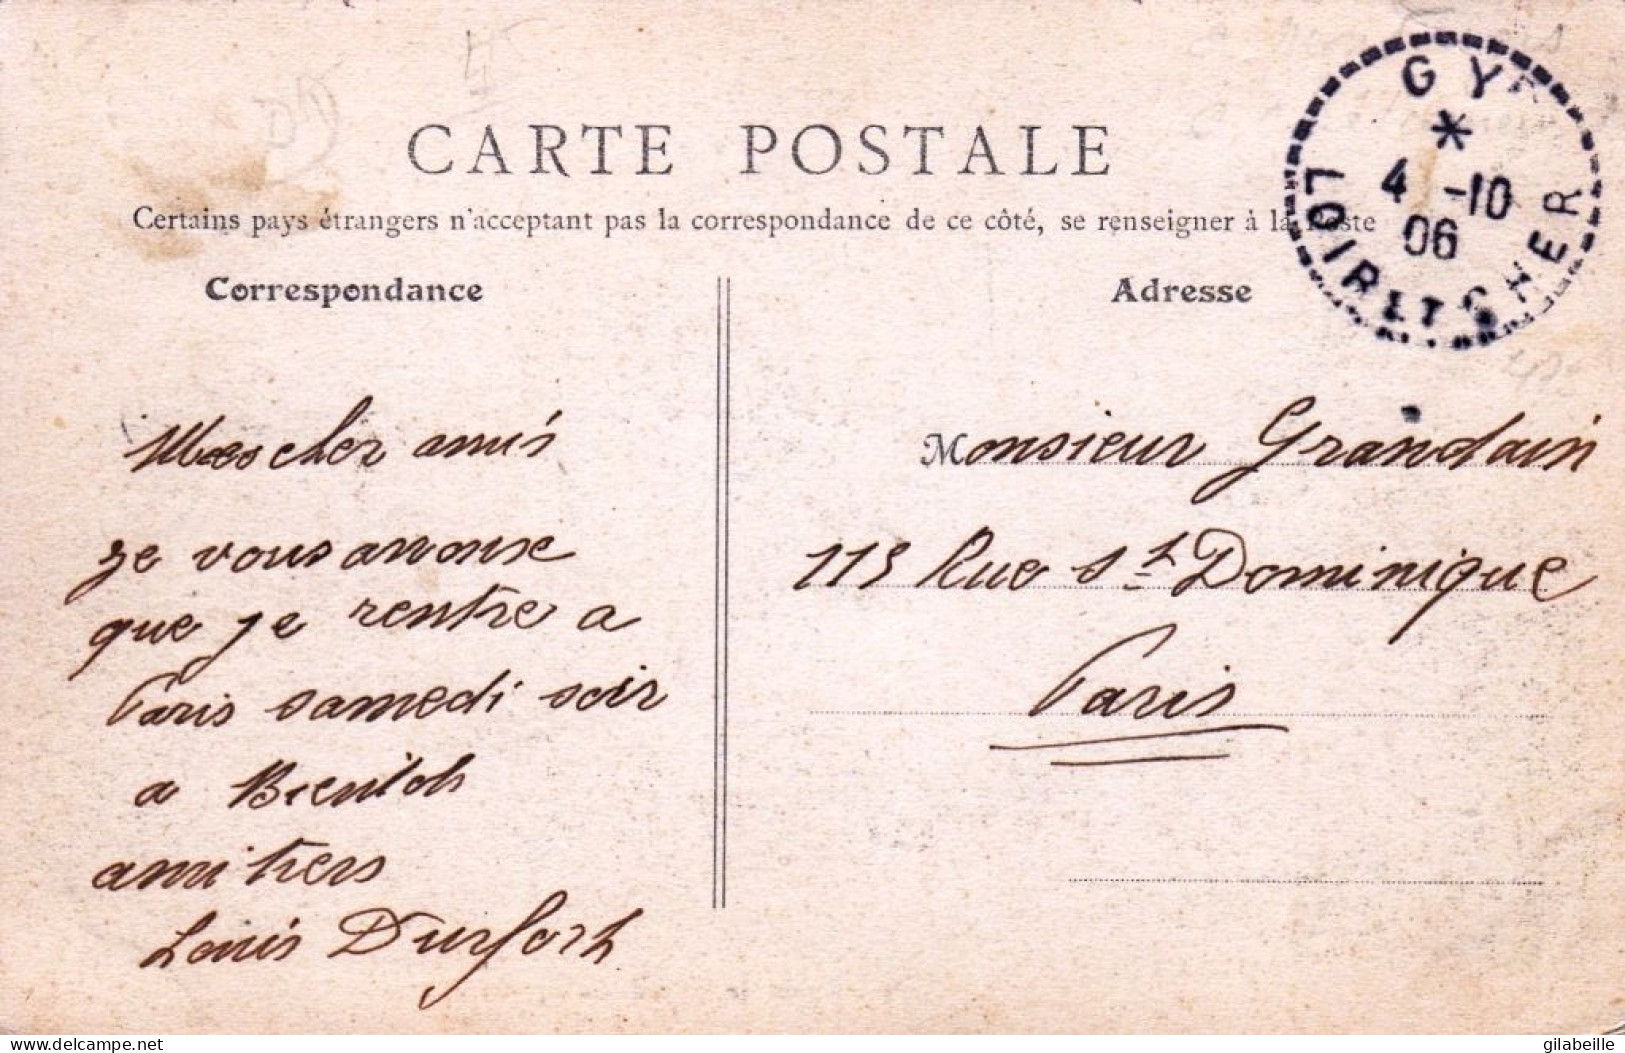 CARTE POSTALE
Certains pays étrangers n'acceptant pas la correspondance de ce côté, se renseigner à la Poste
GY
4 -10
06
LOIR ET CHER
Correspondance
cher amis
je vous anonse
que je rentre a
Paris samedi soir
a Bientoh
amitiers
Louis Durfort
Adresse
Monsieur Grandain
113 Rue St Dominique
Paris
delcampe.net
gilabeille